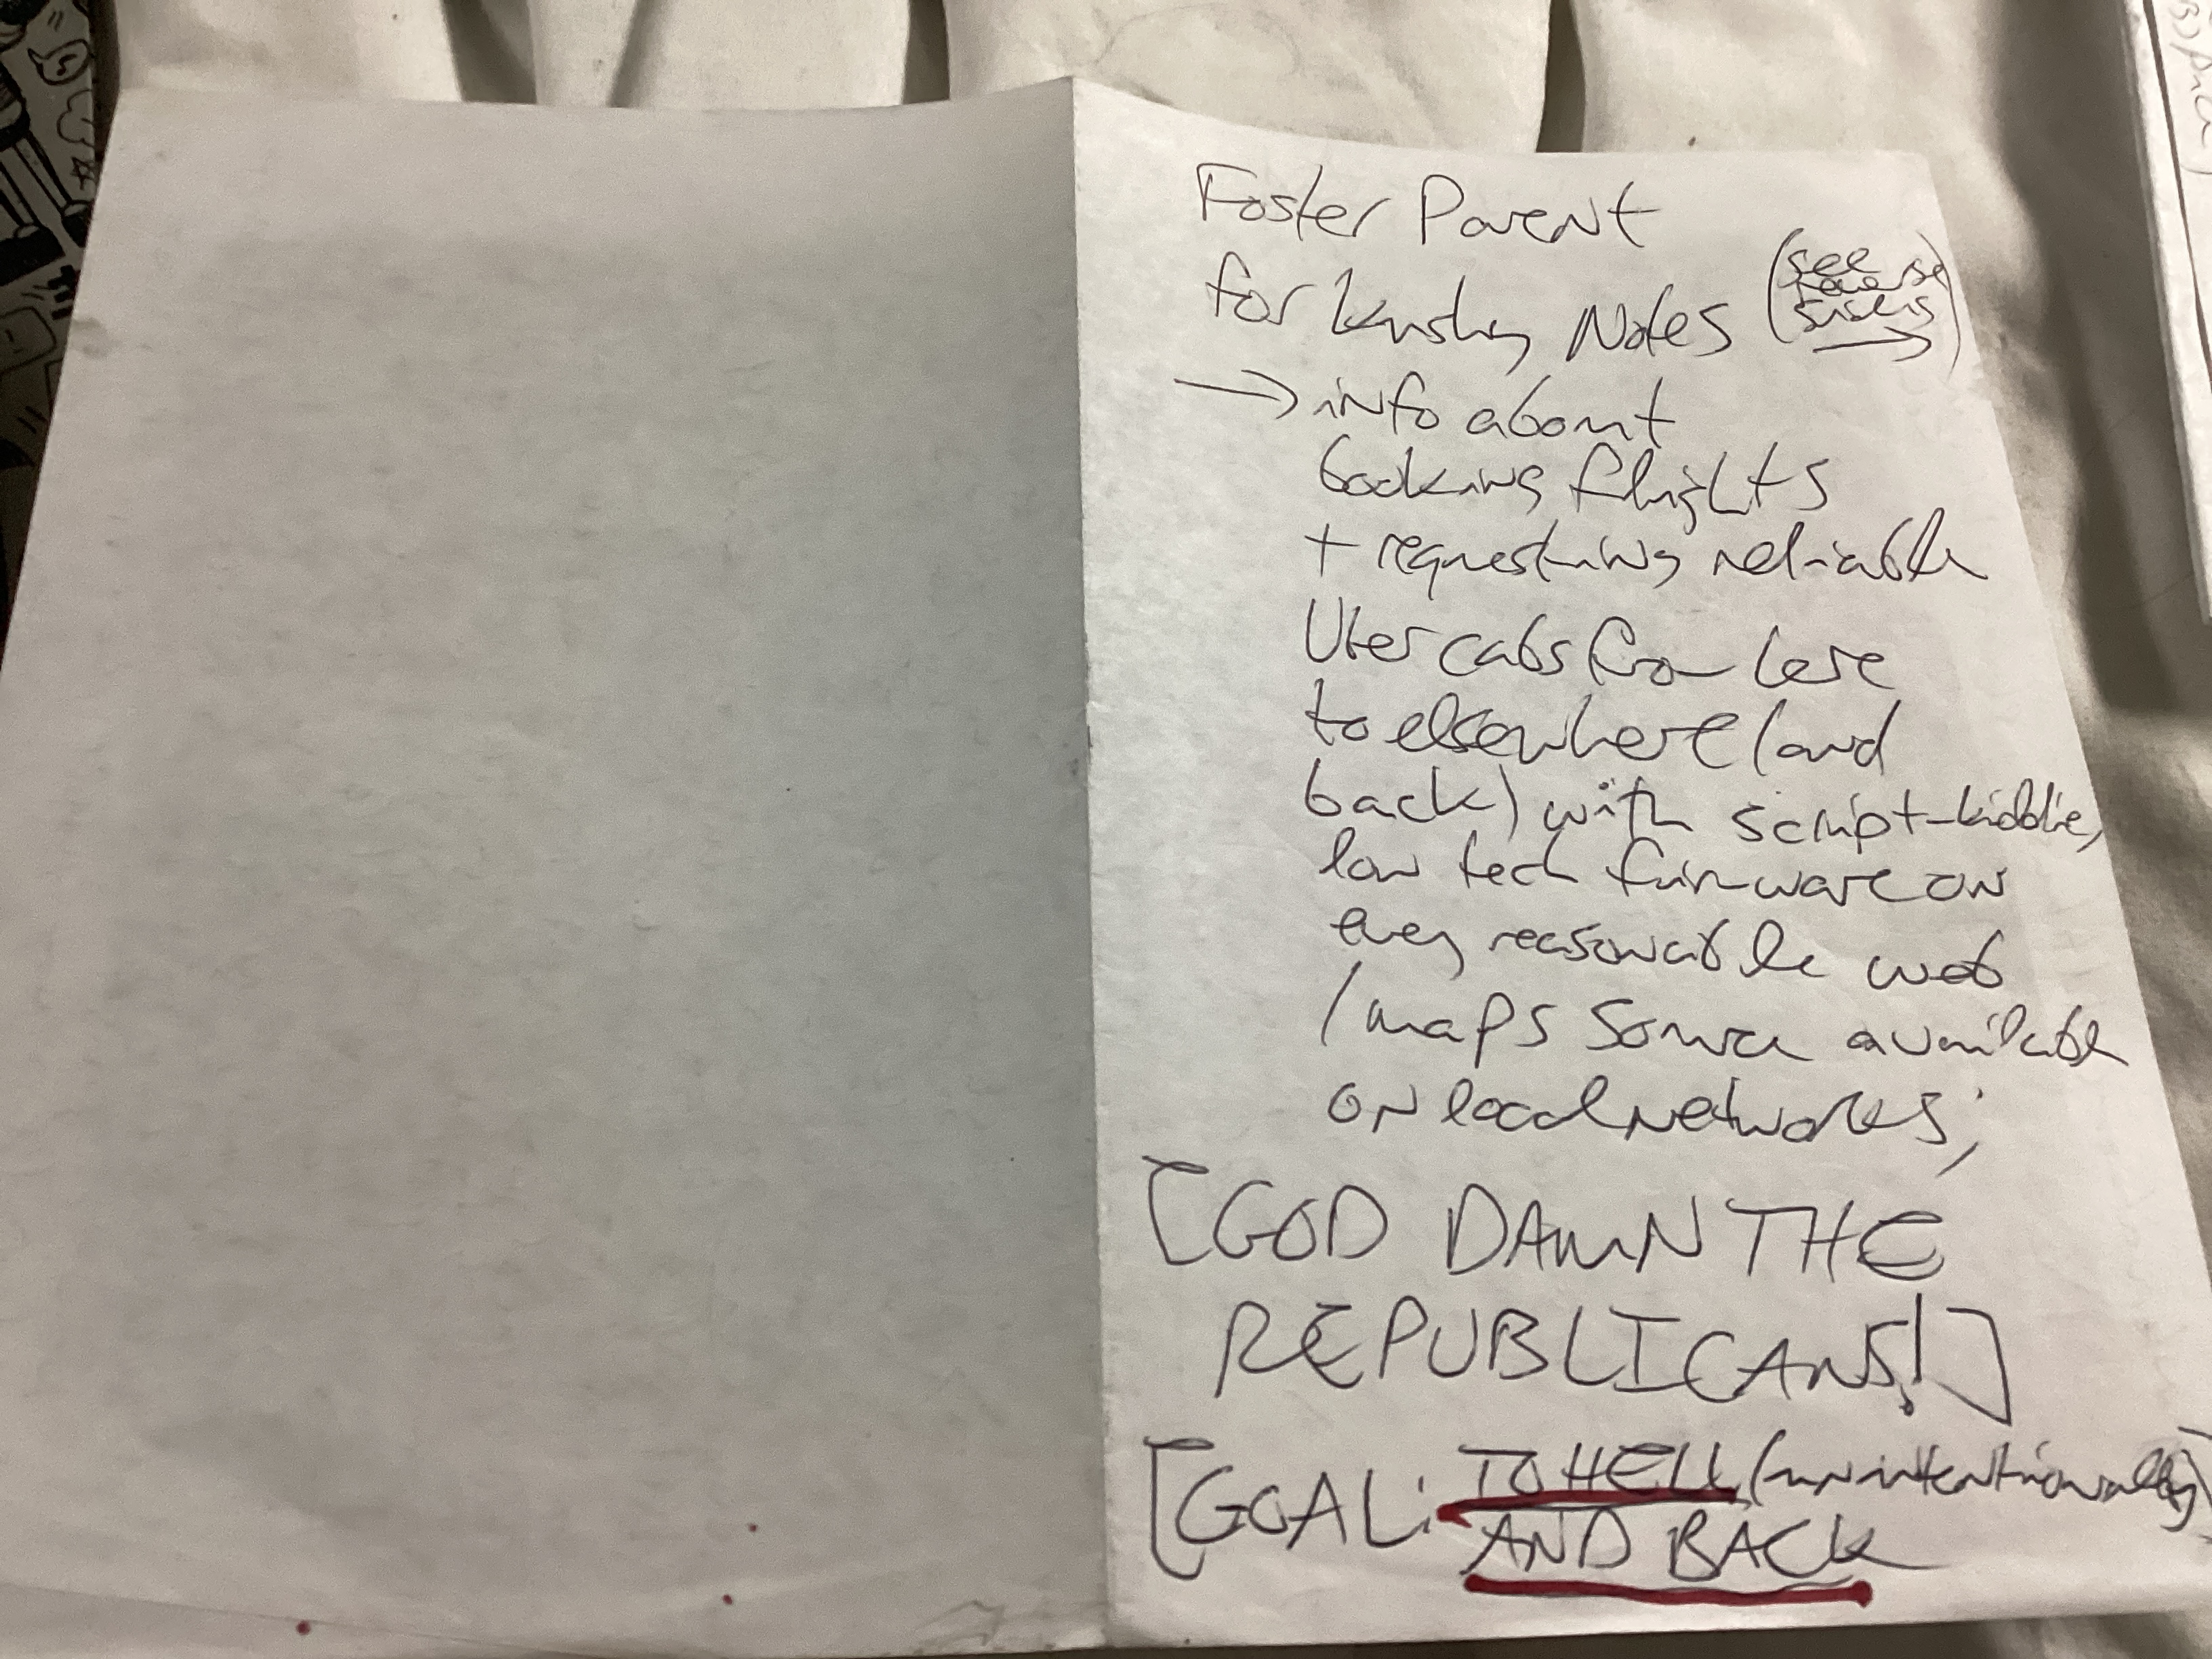 Foster Parent
for Notes (see
reverse
→)
→ info about
booking flights
+ requesting reliable
Uber cabs from here
to elsewhere (and
back) with script-kiddie,
low tech firmware on
every reasonable web
/maps source available
on local networks;
[GOD DAMN THE
REPUBLICANS!]
[GOAL: TO HELL (unintentionally)
AND BACK